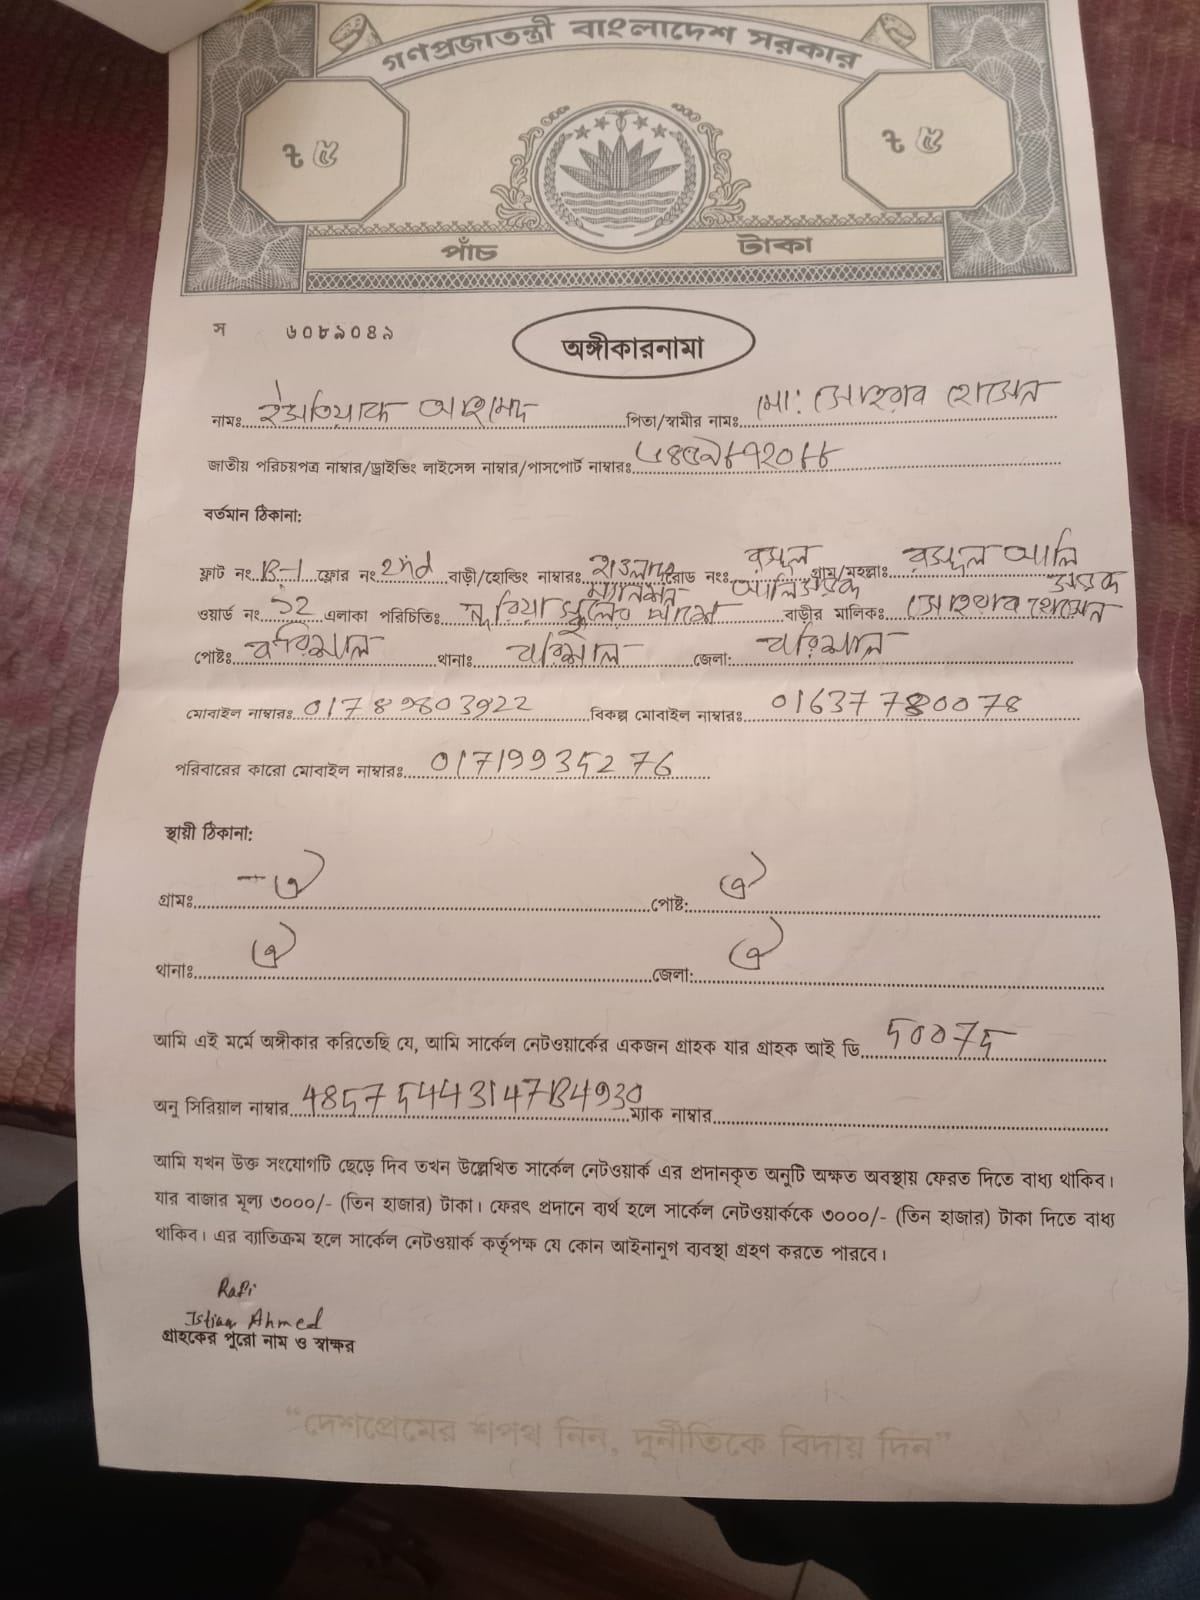 গণপ্রজাতন্ত্রী বাংলাদেশ সরকার
৳ ৫ ৳ ৫
পাঁচ টাকা
স ৬০৮৯০৪৯
অঙ্গীকারনামা
নামঃ ইসতিয়াক আহমেদ পিতা/স্বামীর নামঃ মো: সোহরাব হোসেন
জাতীয় পরিচয়পত্র নাম্বার/ড্রাইভিং লাইসেন্স নাম্বার/পাসপোর্ট নাম্বারঃ
বর্তমান ঠিকানা:
ফ্লাট নং B-1 ফ্লোর নং 2nd বাড়ী/হোল্ডিং নাম্বারঃ হাওলাদার ম্যানশন রোড নং: রসুল আলি সড়ক গ্রাম/মহল্লা: রসুল আলি সড়ক
ওয়ার্ড নং ১২ এলাকা পরিচিতি: নুরিয়া স্কুলের পাশে বাড়ীর মালিক: সোহরাব হোসেন
পোষ্টঃ বরিশাল থানাঃ বরিশাল জেলা: বরিশাল
মোবাইল নাম্বারঃ বিকল্প মোবাইল নাম্বারঃ 01637780078
পরিবারের কারো মোবাইল নাম্বারঃ 01719935276
স্থায়ী ঠিকানা:
গ্রামঃ ঐ পোষ্ট: ঐ
থানাঃ ঐ জেলা: ঐ
আমি এই মর্মে অঙ্গীকার করিতেছি যে, আমি সার্কেল নেটওয়ার্কের একজন গ্রাহক যার গ্রাহক আই ডি 50075
অনু সিরিয়াল নাম্বার 485754443147B4930 ম্যাক নাম্বার
আমি যখন উক্ত সংযোগটি ছেড়ে দিব তখন উল্লেখিত সার্কেল নেটওয়ার্ক এর প্রদানকৃত অনুটি অক্ষত অবস্থায় ফেরত দিতে বাধ্য থাকিব।
যার বাজার মূল্য ৩০০০/- (তিন হাজার) টাকা। ফেরৎ প্রদানে ব্যর্থ হলে সার্কেল নেটওয়ার্ককে ৩০০০/- (তিন হাজার) টাকা দিতে বাধ্য
থাকিব। এর ব্যাতিক্রম হলে সার্কেল নেটওয়ার্ক কর্তৃপক্ষ যে কোন আইনানুগ ব্যবস্থা গ্রহণ করতে পারবে।
Rafi
Istiaq Ahmed
গ্রাহকের পুরো নাম ও স্বাক্ষর
“দেশপ্রেমের শপথ নিন, দুর্নীতিকে বিদায় দিন”